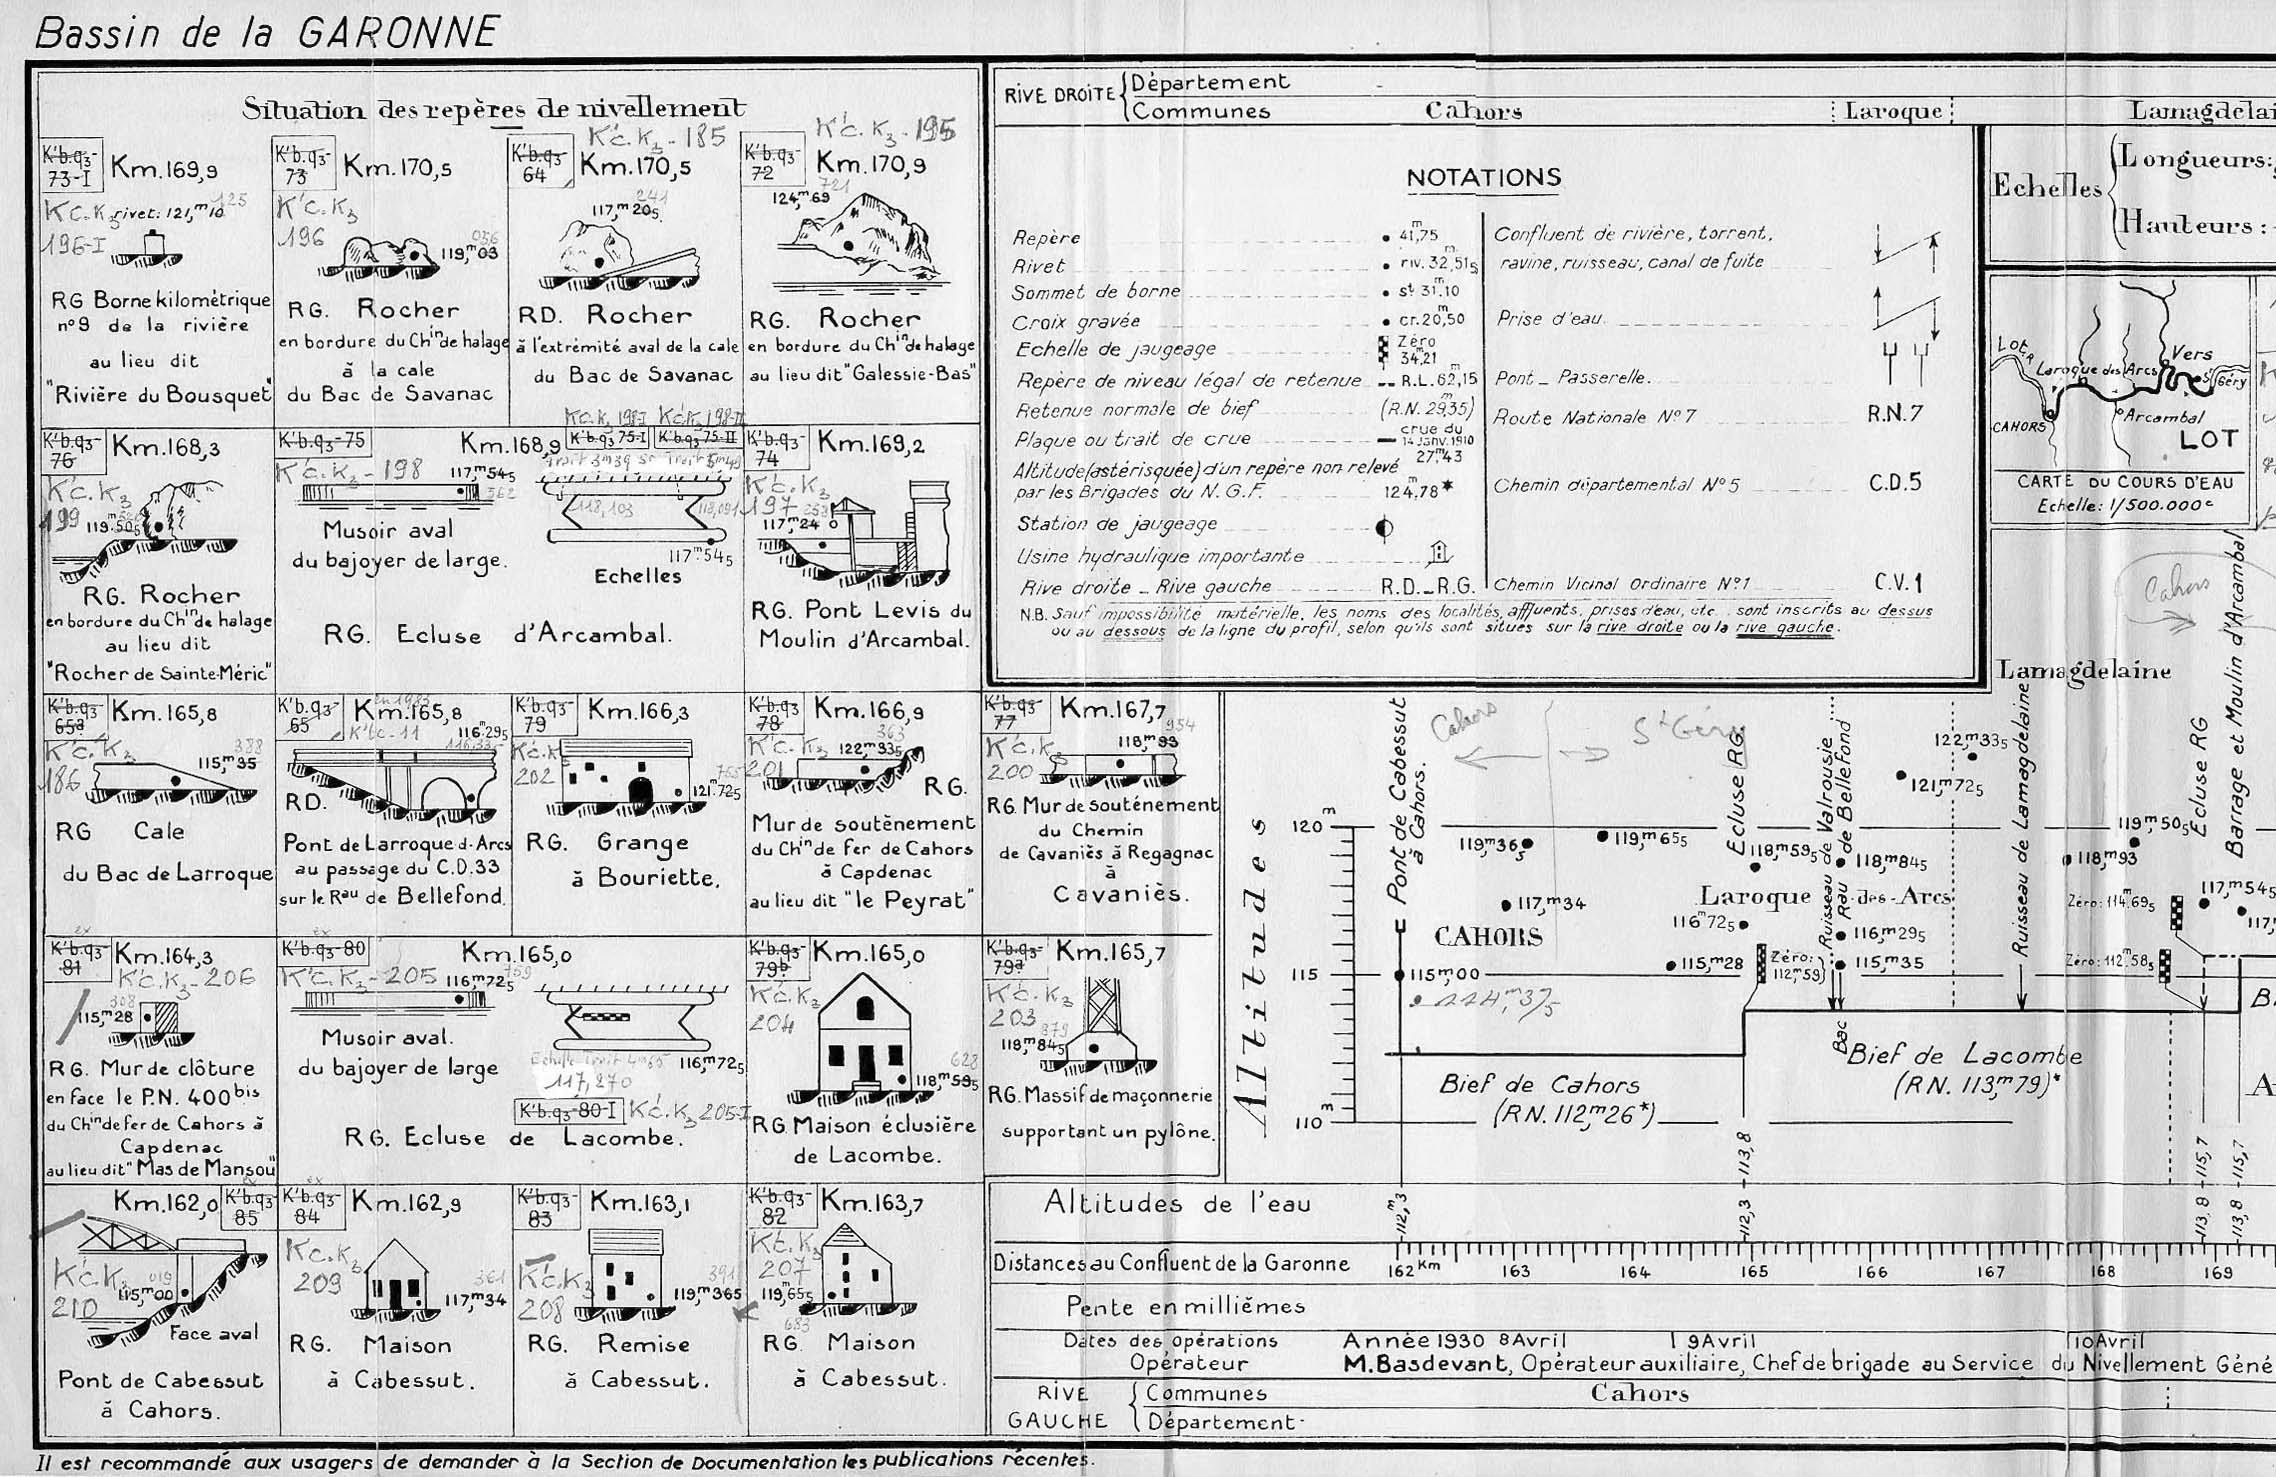 Bassin de la GARONNE
Situation des repères de nivellement
K'b.q3-73-I Km.169,9
Kc.k3 196-I rivet: 121,m10 125
RG Borne kilométrique
n°9 de la rivière
au lieu dit
"Rivière du Bousquet"
K'b.q3-73 Km.170,5
K'c.k3 196
119,m03 036
RG. Rocher
en bordure du Chin de halage
à la cale
du Bac de Savanac
K'b.q3-64 Km.170,5
K'c.k3-185
117,m205 241
RD. Rocher
à l'extrémité aval de la cale
du Bac de Savanac
K'b.q3-72 Km.170,9
K'c.k3-195
124,m69 721
RG. Rocher
en bordure du Chin de halage
au lieu dit "Galessie-Bas"
K'b.q3-76 Km.168,3
K'c.k3 199
119,m505
RG. Rocher
en bordure du Chin de halage
au lieu dit
"Rocher de Sainte-Méric"
K'b.q3-75 Km.168,9
K'c.k3-198
117,m545 562
Musoir aval
du bajoyer de large.
K'c.k3 198-I K'c.k3 198-II
K'b.q3 75-I K'b.q3 75-II
118,103 118,091
117,m545
Echelles
RG. Ecluse d'Arcambal.
K'b.q3-74 Km.169,2
K'c.k3 197 258
117,m24
RG. Pont Levis du
Moulin d'Arcambal.
K'b.q3-65a Km.165,8
K'c.k3 186
115,m35 388
RG Cale
du Bac de Larroque
K'b.q3-65 Km.165,8
en 1983
K'bc-11
116,m295
RD.
Pont de Larroque d-Arcs
au passage du C.D.33
sur le Rau de Bellefond.
K'b.q3-79 Km.166,3
K'c.k3 202
121,m725 755
RG. Grange
à Bouriette.
K'b.q3-78 Km.166,9
K'c.k3 201
122,m335 363
RG.
Mur de soutènement
du Chin de fer de Cahors
à Capdenac
au lieu dit "le Peyrat"
K'b.q3-77 Km.167,7
K'c.k3 200
118,m93 954
RG. Mur de soutènement
du Chemin
de Cavaniès à Regagnac
à
Cavaniès.
ex K'b.q3-81 Km.164,3
K'c.k3-206
115,m28 308
RG. Mur de clôture
en face le P.N. 400bis
du Chin de fer de Cahors à
Capdenac
au lieu dit "Mas de Mansou"
ex K'b.q3-80 Km.165,0
K'c.k3-205
116,m725 759
Musoir aval.
du bajoyer de large
Echelle Trait 4m65
117,270
116,m725
K'b.q3-80-I K'c.k3 205-I
RG. Ecluse de Lacombe.
K'b.q3-79b Km.165,0
K'c.k3 204
118,m595 628
RG. Maison éclusière
de Lacombe.
K'b.q3-79a Km.165,7
K'c.k3 203
118,m845 879
RG. Massif de maçonnerie
supportant un pylône.
Km.162,0 ex K'b.q3-85
K'c.k3 210
115,m00 019
Face aval
Pont de Cabessut
à Cahors.
ex K'b.q3-84 Km.162,9
Kc.k3 209
117,m34 361
RG. Maison
à Cabessut.
K'b.q3-83 Km.163,1
K'c.k3 208
119,m365 391
RG. Remise
à Cabessut.
K'b.q3-82 Km.163,7
K'c.k3 207
119,m655 683
RG. Maison
à Cabessut.
RIVE DROITE { Département
Communes Cahors Laroque Lamagdelai
NOTATIONS
Repère 41,m75
Rivet riv. 32,m515
Sommet de borne st 31,m10
Croix gravée cr. 20,m50
Echelle de jaugeage Zéro 34,m21
Repère de niveau légal de retenue R.L. 62,m15
Retenue normale de bief (R.N. 29,m35)
Plaque ou trait de crue crue du 14 Janv. 1910 27,m43
Altitude (astérisquée) d'un repère non relevé
par les Brigades du N.G.F. 124,m78*
Station de jaugeage
Usine hydraulique importante
Rive droite _ Rive gauche R.D._R.G.
Confluent de rivière, torrent,
ravine, ruisseau, canal de fuite
Prise d'eau.
Pont _ Passerelle.
Route Nationale N°7 R.N.7
Chemin départemental N°5 C.D.5
Chemin Vicinal Ordinaire N°1 C.V.1
N.B. Sauf impossibilité matérielle, les noms des localités, affluents, prises d'eau, etc.. sont inscrits au dessus
ou au dessous de la ligne du profil, selon qu'ils sont situés sur la rive droite ou la rive gauche.
Echelles { Longueurs:
Hauteurs:
Lot R
Laroque des Arcs
Vers
St Géry
CAHORS
Arcambal
LOT
CARTE DU COURS D'EAU
Echelle: 1/500.000e
Cahors
Lamagdelaine
Cahors St Géry
Altitudes
120m
115
110m
Pont de Cabessut
à Cahors.
Ecluse RG.
Ruisseau de Valrousie
Rau de Bellefond
Ruisseau de Lamagdelaine
Ecluse RG
Barrage et Moulin d'Arcambal
122,m335
121,m725
119,m365
119,m655
118,m595
118,m845
119,m505
118,m93
117,m34
Laroque-des-Arcs
Zéro: 114,m695
117,m545
117,
116,m725
CAHORS
116,m295
115,m00
115,m28
Zéro: 112,m59
115,m35
Zéro: 112,m585
114,m375
Bac
Bief de Cahors
(R.N. 112,m26*)
Bief de Lacombe
(R.N. 113,m79)*
B
A
Altitudes de l'eau
112,m3
112,3 113,8
113,8 115,7
113,8 115,7
Distances au Confluent de la Garonne
162Km 163 164 165 166 167 168 169
Pente en millièmes
Dates des opérations Année 1930 8 Avril 9 Avril 10 Avril
Opérateur M. Basdevant, Opérateur auxiliaire, Chef de brigade au Service du Nivellement Géné
RIVE GAUCHE { Communes Cahors
Département
Il est recommandé aux usagers de demander à la Section de Documentation les publications récentes.